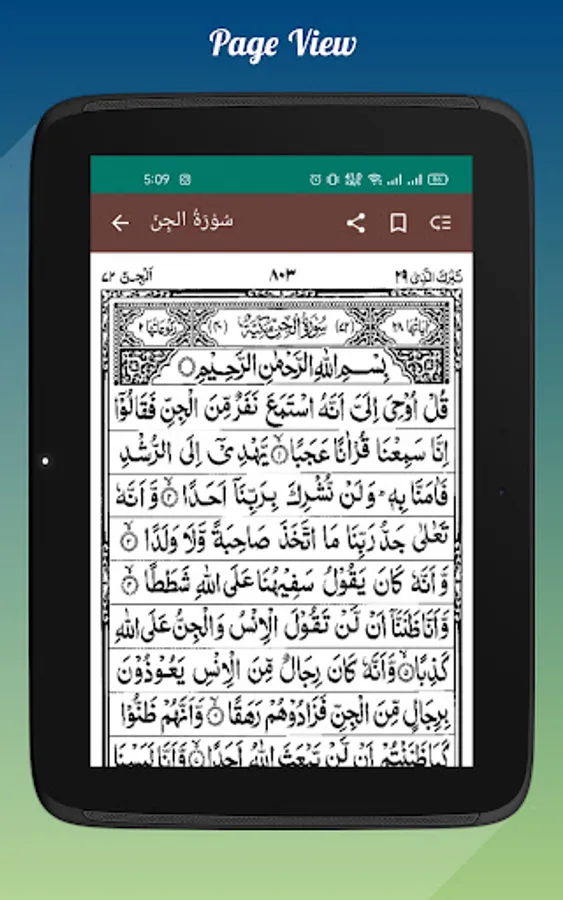 Page View
5:09
86
سُوْرَةُ الجِنّ
تَبٰرَكَ الَّذِىْ ٢٩ ٨٠٣ اَلْجِنّ ٧٢
اٰيَاتُهَا ٢٨ (٧٢) سُوْرَةُ الْجِنِّ مَكِّيَّةٌ (٤٠) رُكُوْعَاتُهَا ٢
بِسْمِ اللّٰهِ الرَّحْمٰنِ الرَّحِيْمِ
قُلْ اُوْحِىَ اِلَىَّ اَنَّهُ اسْتَمَعَ نَفَرٌ مِّنَ الْجِنِّ فَقَالُوْٓا
اِنَّا سَمِعْنَا قُرْاٰنًا عَجَبًا ۝١ يَّهْدِىْٓ اِلَى الرُّشْدِ
فَاٰمَنَّا بِهٖ ؕ وَلَنْ نُّشْرِكَ بِرَبِّنَآ اَحَدًا ۝٢ وَّاَنَّهٗ
تَعٰلٰى جَدُّ رَبِّنَا مَا اتَّخَذَ صَاحِبَةً وَّلَا وَلَدًا ۝٣
وَّاَنَّهٗ كَانَ يَقُوْلُ سَفِيْهُنَا عَلَى اللّٰهِ شَطَطًا ۝٤
وَّاَنَّا ظَنَنَّآ اَنْ لَّنْ تَقُوْلَ الْاِنْسُ وَالْجِنُّ عَلَى اللّٰهِ
كَذِبًا ۝٥ وَّاَنَّهٗ كَانَ رِجَالٌ مِّنَ الْاِنْسِ يَعُوْذُوْنَ
بِرِجَالٍ مِّنَ الْجِنِّ فَزَادُوْهُمْ رَهَقًا ۝٦ وَّاَنَّهُمْ ظَنُّوْا
كَمَا ظَنَنْتُمْ اَنْ لَّنْ يَّبْعَثَ اللّٰهُ اَحَدًا ۝٧ وَّاَنَّا لَمَسْنَا